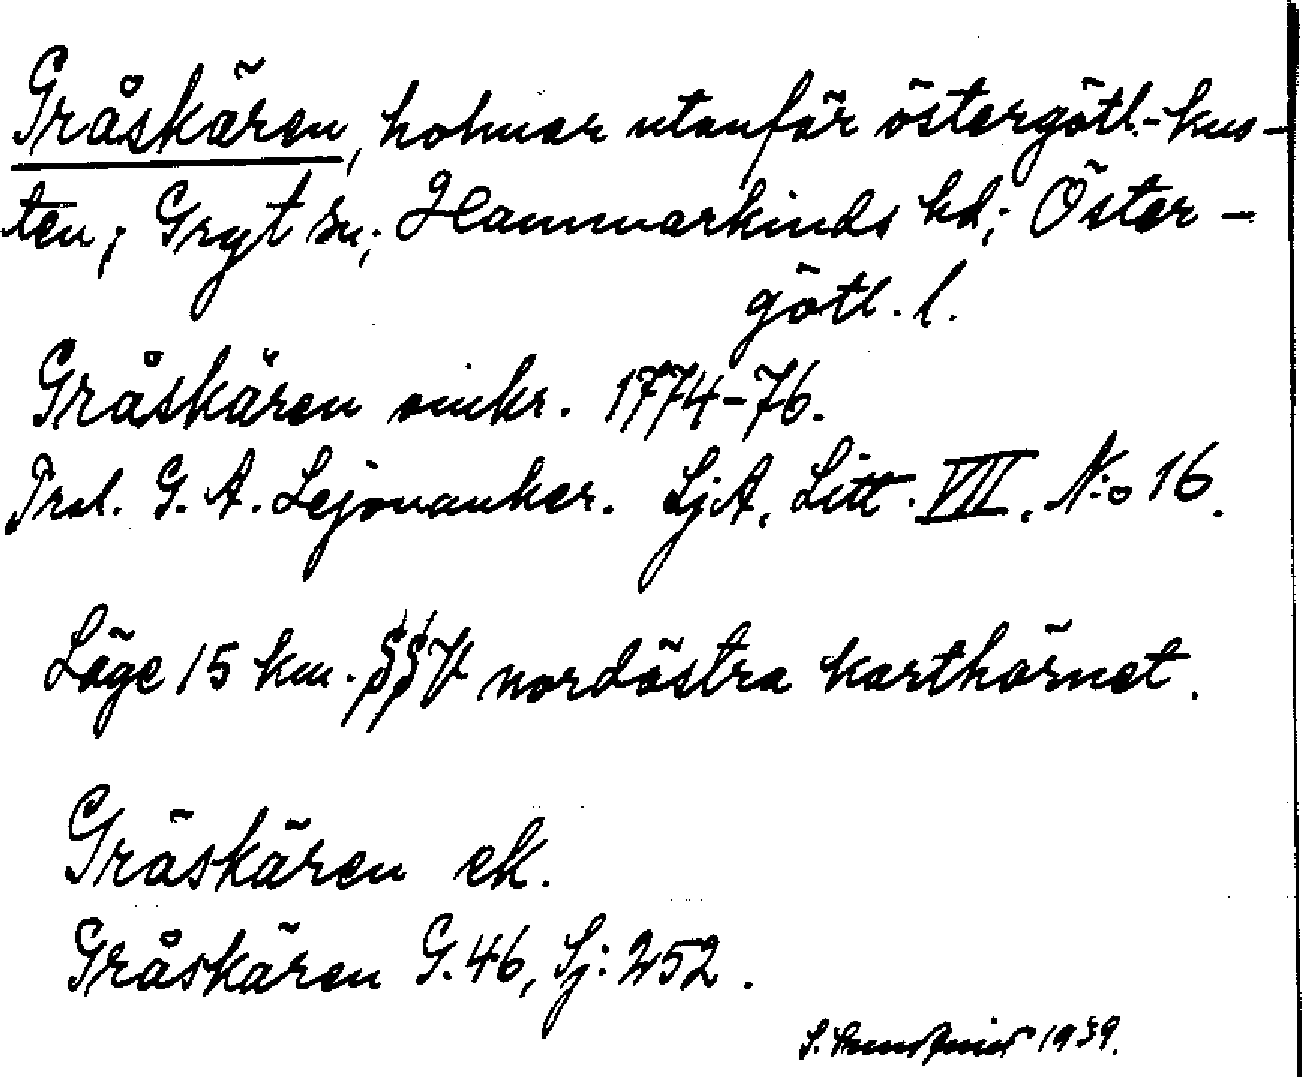 Gråskären, holmar utanför östergötl.-kus-
ten, Gryt sn; Hammarkinds hd; Öster-
götl. l.
Gråskären omkr. 1774-76.
G. A. Lejonanker. SjA, Litt. VII. N:o 16.
Läge 15 km. nordöstra karthörnet.
Gräskären ek.
Gråskären G. 46, Sj: 252.
S. 1939.